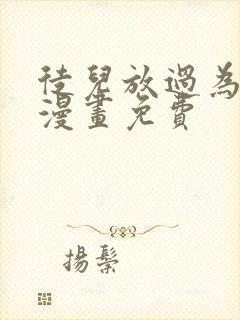 徒兒放過為
漫畫免費
揚鬃